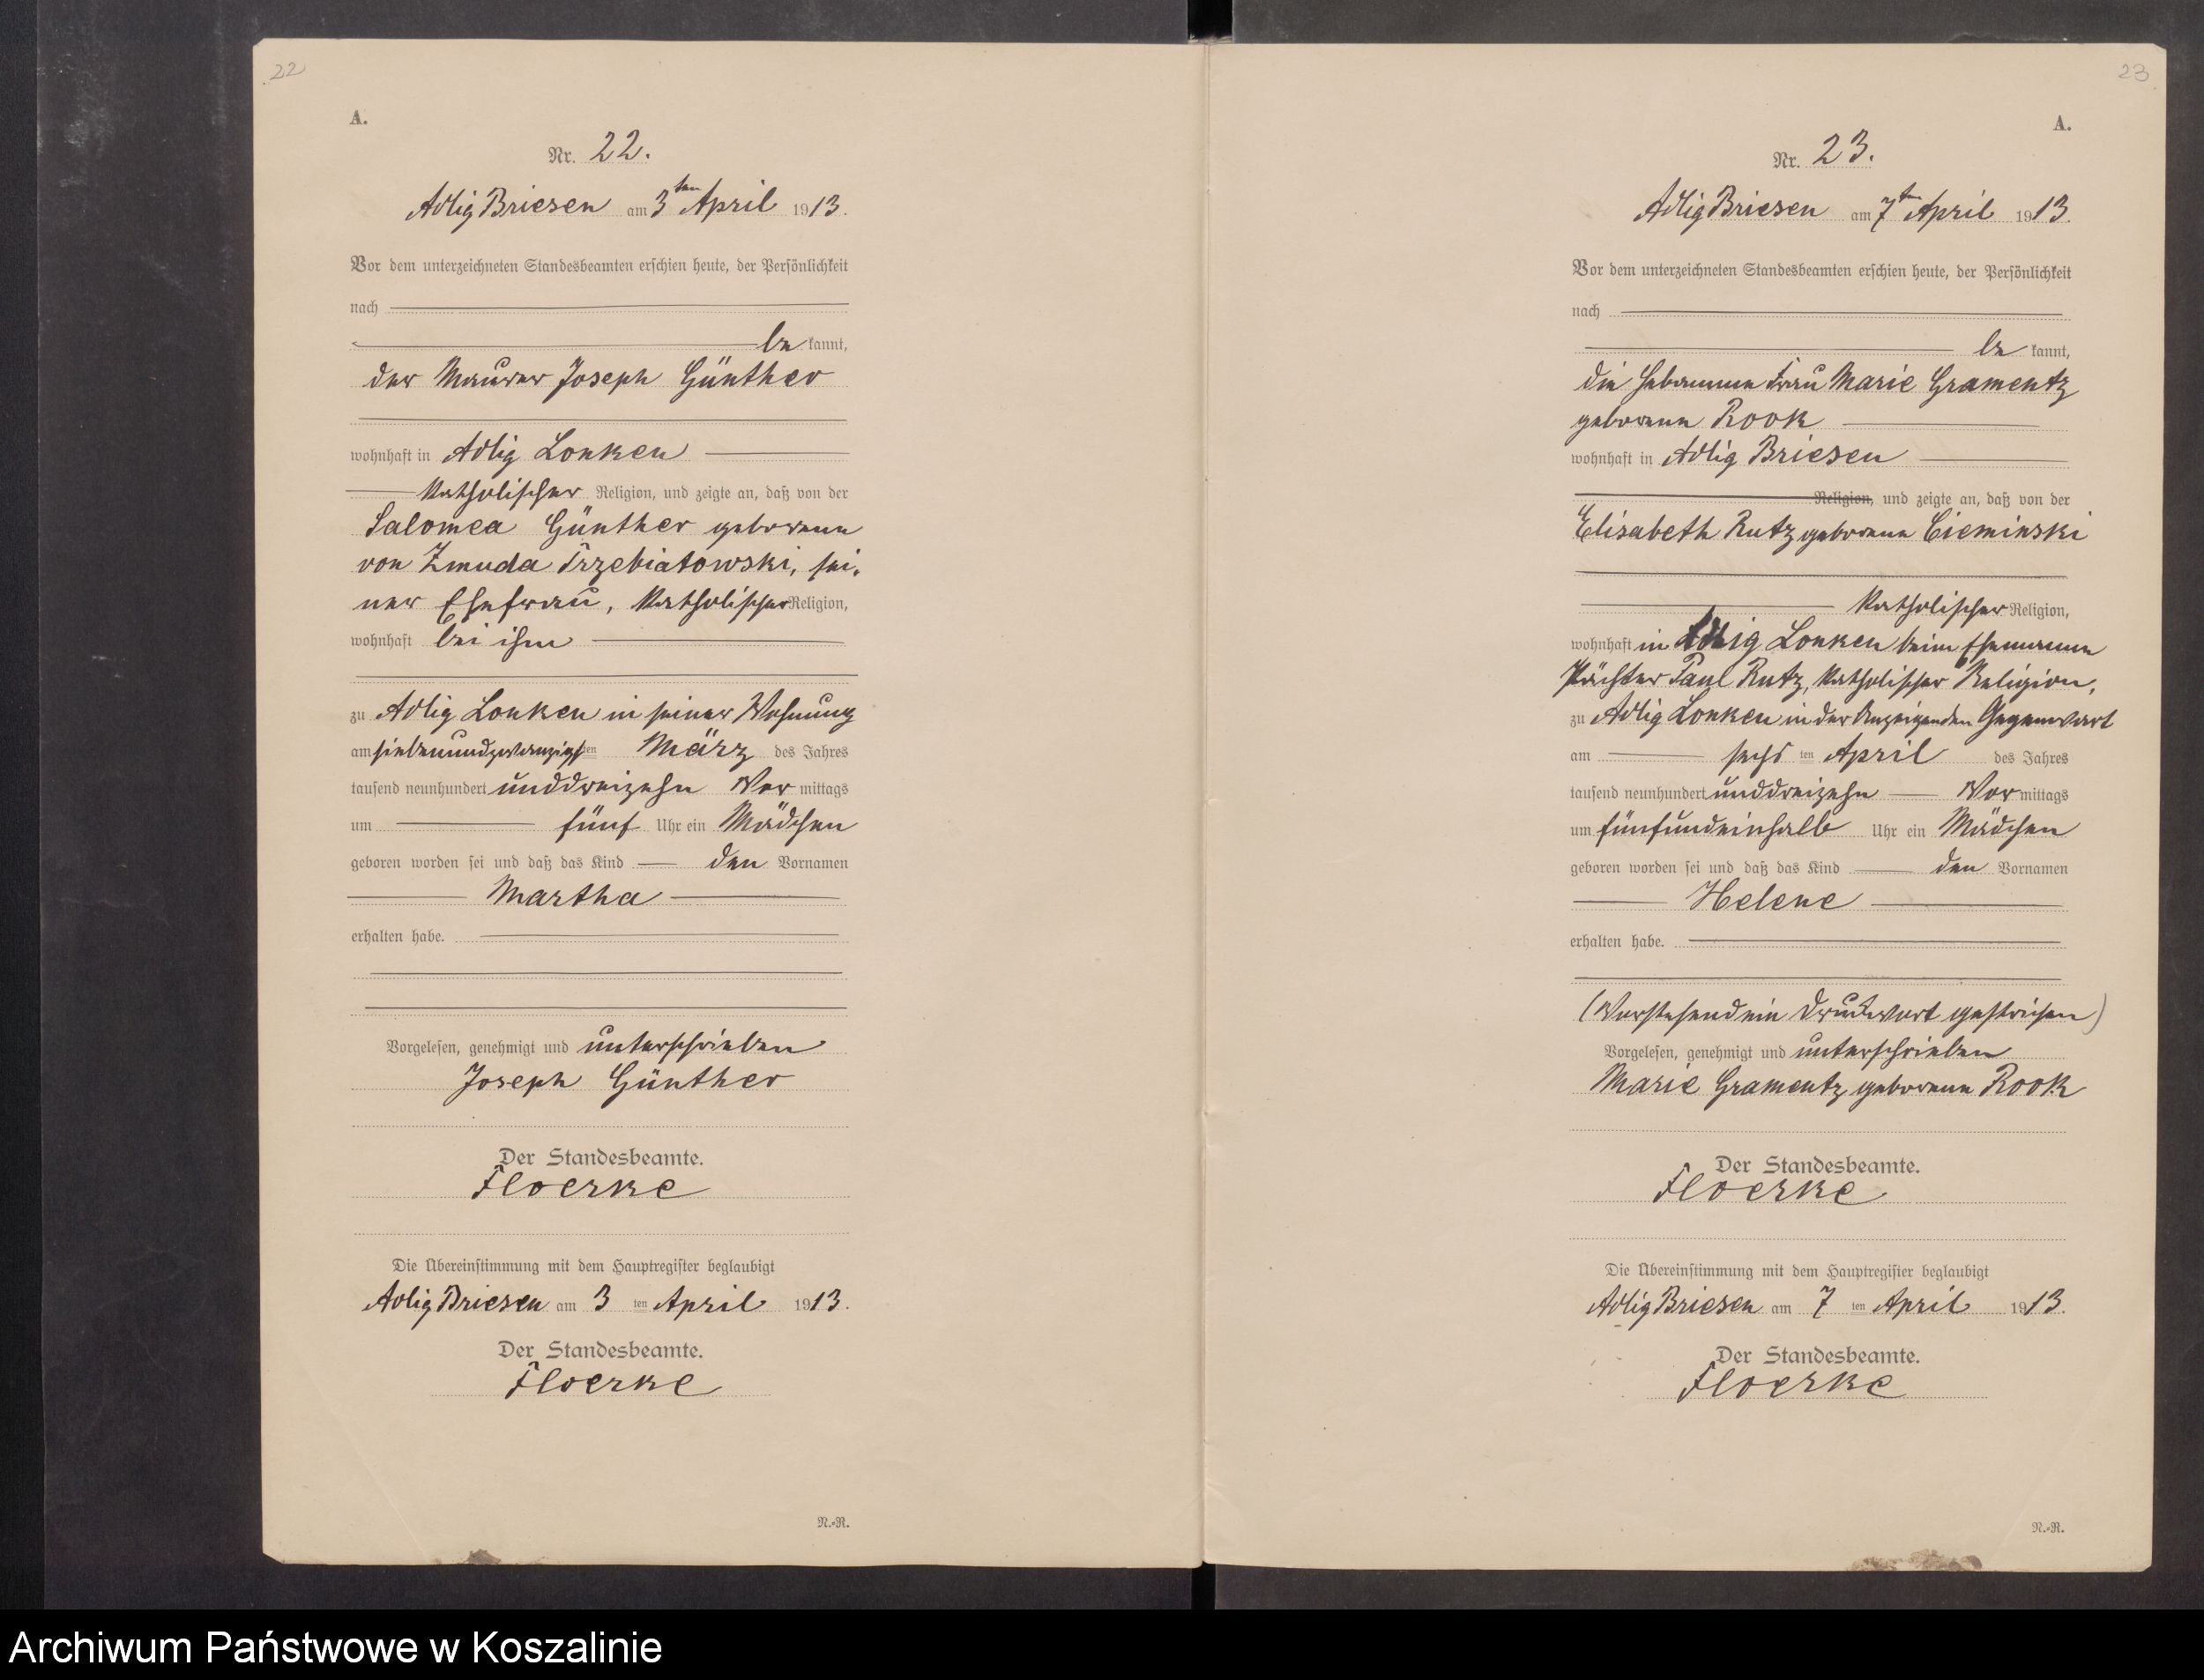 22
A.
Nr. 22.
Adlig Briesen am 3ten April 1913.
Vor dem unterzeichneten Standesbeamten erschien heute, der Persönlichkeit
nach
be kannt,
der Maurer Joseph Günther
wohnhaft in Adlig Lonken
katholischer Religion, und zeigte an, daß von der
Salomea Günther geborene
von Zmuda Trzebiatowski, sei-
ner Ehefrau, katholischer Religion,
wohnhaft bei ihm
zu Adlig Lonken in seiner Wohnung
am siebenundzwanzigsten März des Jahres
tausend neunhundert unddreizehn Vor mittags
um fünf Uhr ein Mädchen
geboren worden sei und daß das Kind den Vornamen
Martha
erhalten habe.
Vorgelesen, genehmigt und unterschrieben
Joseph Günther
Der Standesbeamte.
Floerke
Die Übereinstimmung mit dem Hauptregister beglaubigt
Adlig Briesen am 3 ten April 1913.
Der Standesbeamte.
Floerke
N.-R.
23
A.
Nr. 23.
Adlig Briesen am 7ten April 1913.
Vor dem unterzeichneten Standesbeamten erschien heute, der Persönlichkeit
nach
be kannt,
die Hebamme Frau Marie Gramentz
geborene Rook
wohnhaft in Adlig Briesen
Religion, und zeigte an, daß von der
Elisabeth Rutz geborene Cieminski
katholischer Religion,
wohnhaft in Adlig Lonken beim Ehemanne
Pächter Paul Rutz, katholischer Religion,
zu Adlig Lonken in der Anzeigenden Gegenwart
am sechs ten April des Jahres
tausend neunhundert unddreizehn Vor mittags
um fünfundeinhalb Uhr ein Mädchen
geboren worden sei und daß das Kind den Vornamen
Helene
erhalten habe.
(Vorstehend ein Druckwort gestrichen)
Vorgelesen, genehmigt und unterschrieben
Marie Gramentz geborene Rook
Der Standesbeamte.
Floerke
Die Übereinstimmung mit dem Hauptregister beglaubigt
Adlig Briesen am 7 ten April 1913.
Der Standesbeamte.
Floerke
N.-R.
Archiwum Państwowe w Koszalinie